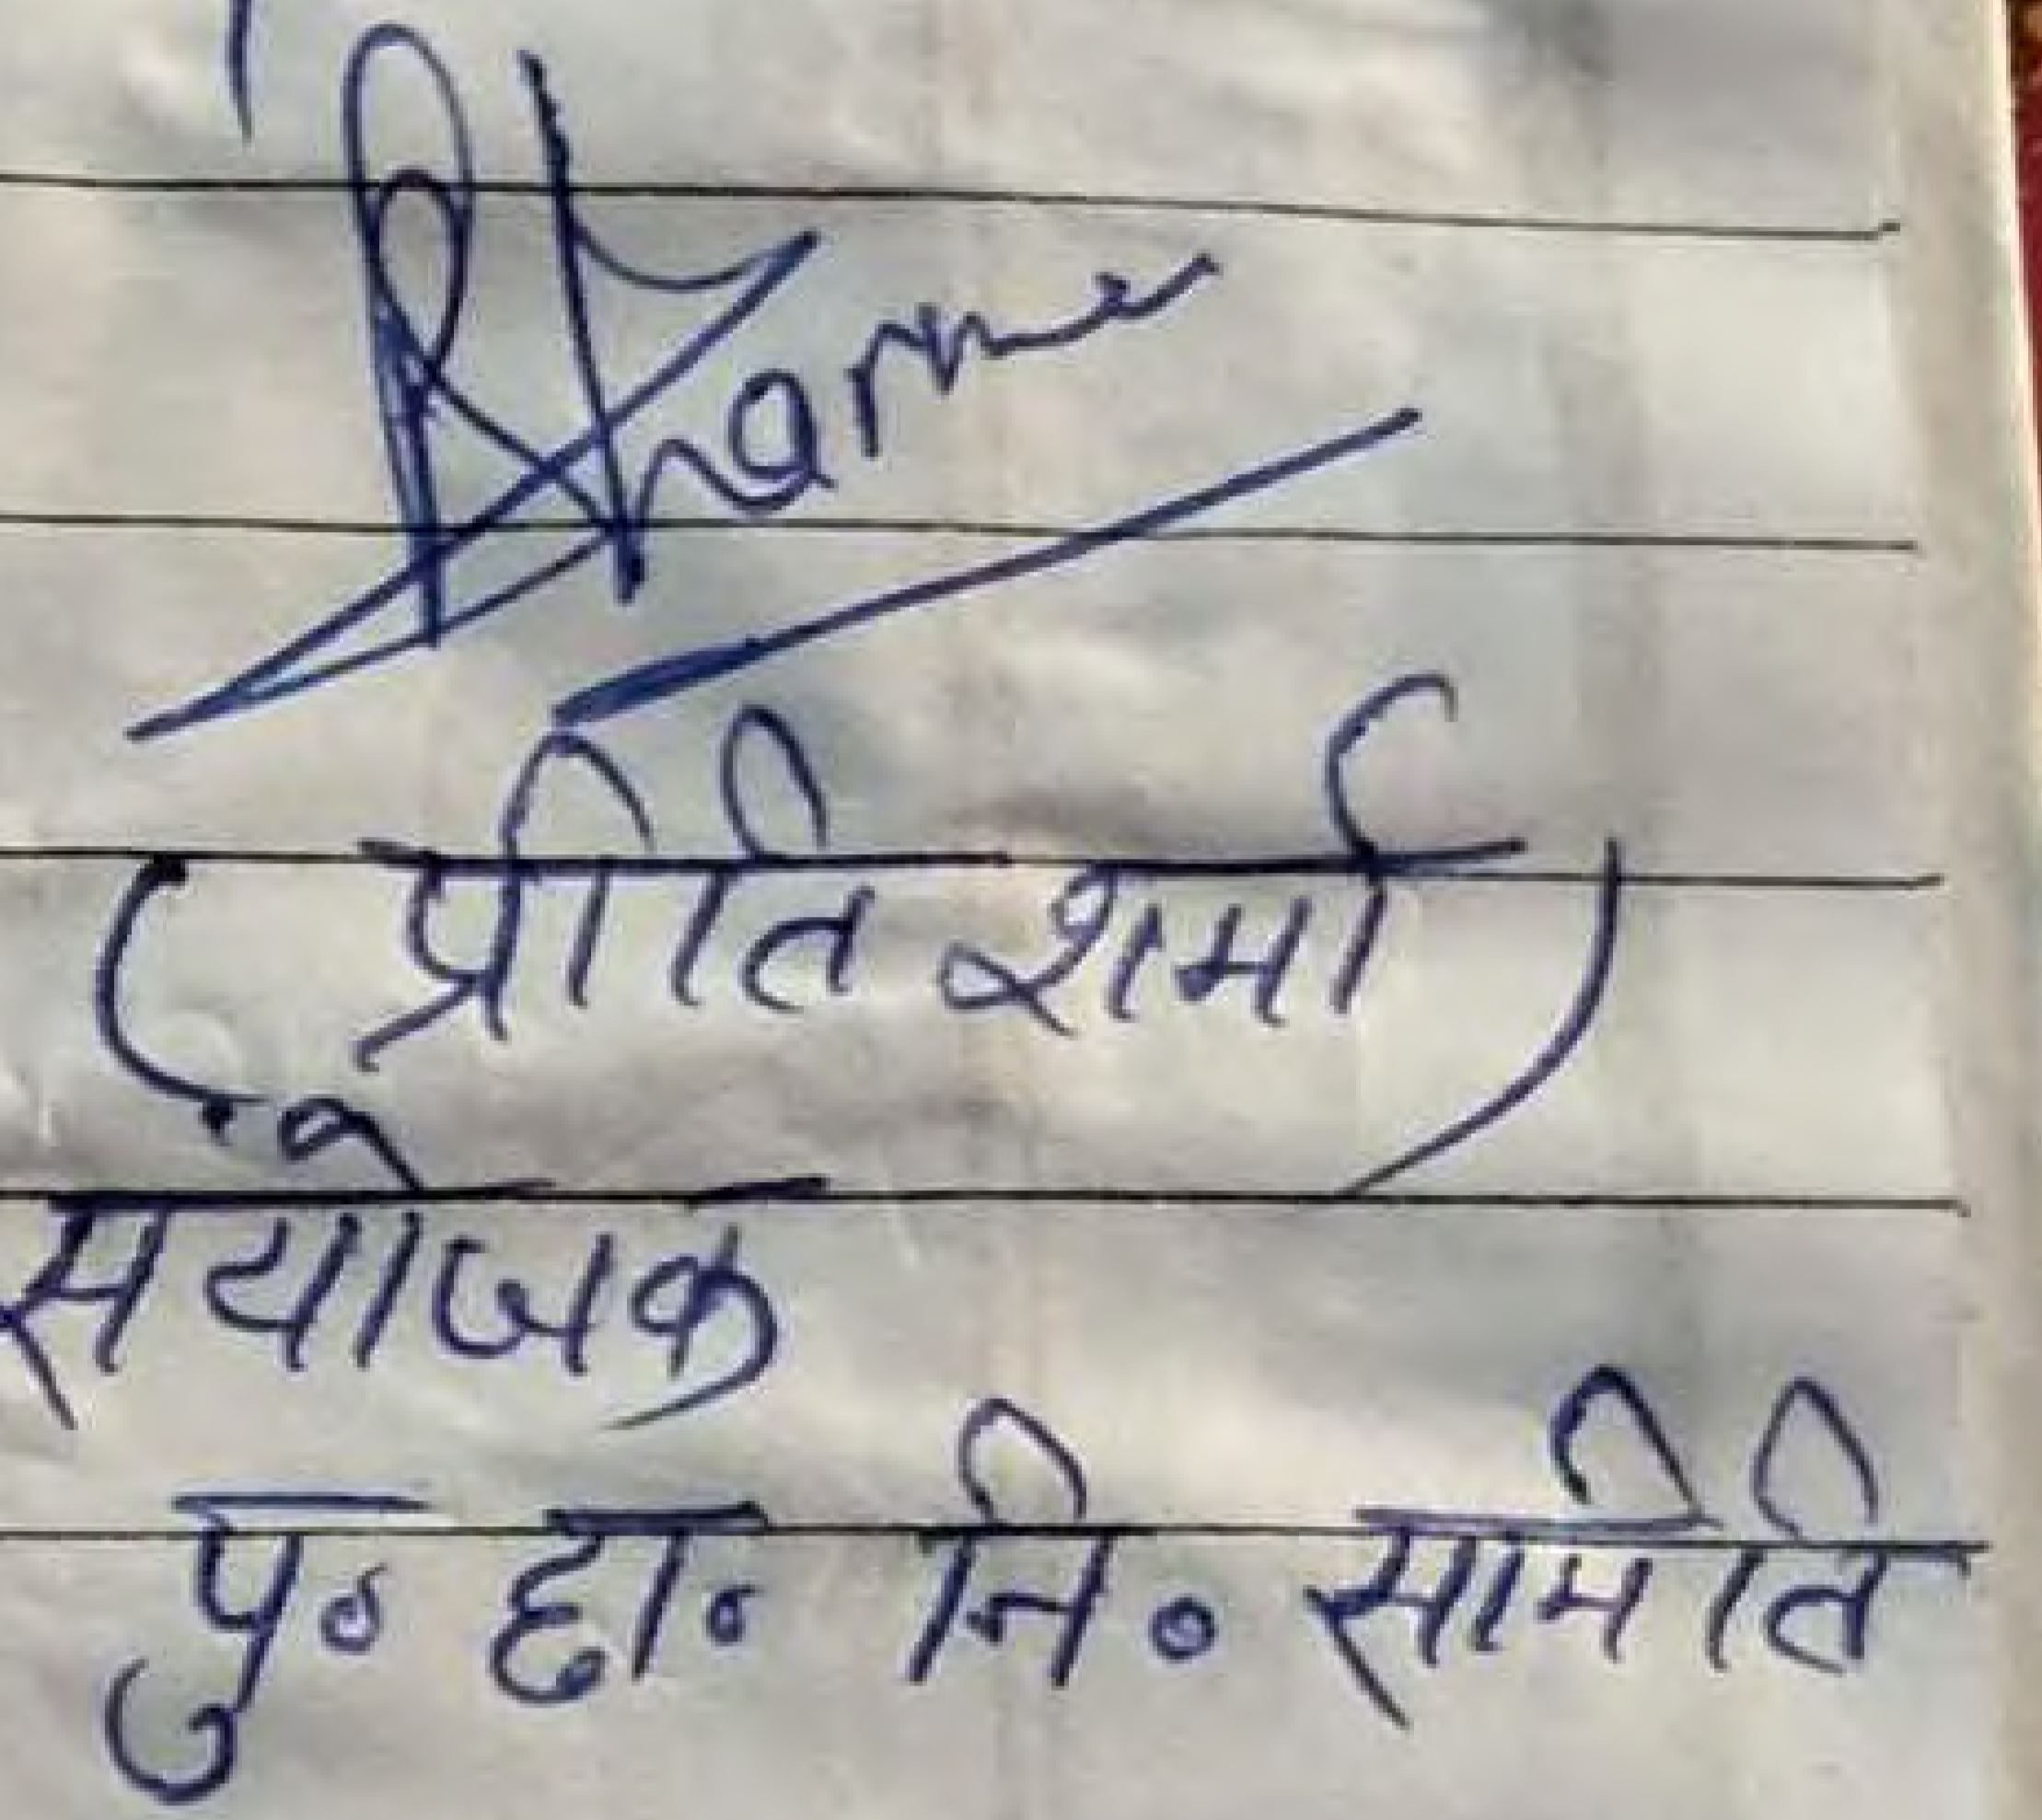 PSharma
(प्रीति शर्मा)
संयोजक
पु० हा० नि० समिति